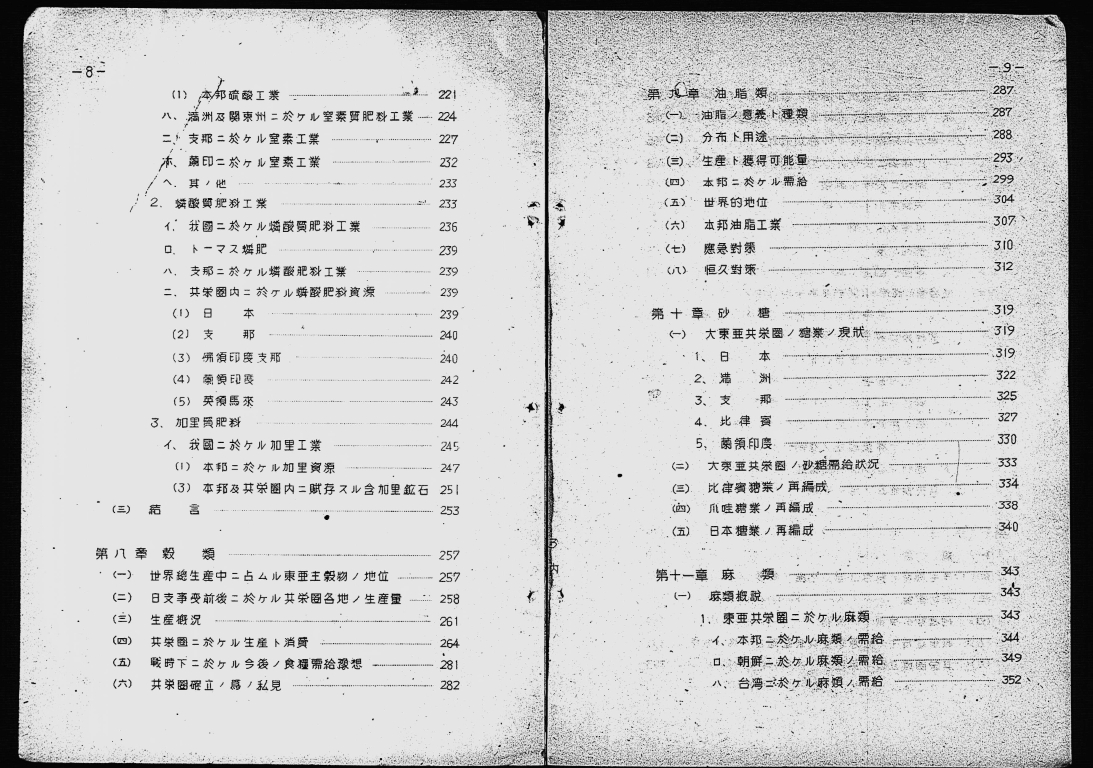 —8—
(1) 本邦硫酸工業 221
ハ、滿洲及關東州ニ於ケル窒素質肥料工業 224
ニ、支那ニ於ケル窒素工業 227
ホ、蘭印ニ於ケル窒素工業 232
ヘ、其ノ他 233
2. 燐酸質肥料工業 233
イ、我國ニ於ケル燐酸質肥料工業 236
ロ、トーマス燐肥 239
ハ、支那ニ於ケル燐酸肥料工業 239
ニ、共栄圏内ニ於ケル燐酸肥料資源 239
(1) 日本 239
(2) 支那 240
(3) 佛領印度支那 240
(4) 蘭領印度 242
(5) 英領馬來 243
3. 加里質肥料 244
イ、我國ニ於ケル加里工業 245
(1) 本邦ニ於ケル加里資源 247
(3) 本邦及共栄圏内ニ賦存スル含加里鉱石 251
(三) 結言 253
第八章 穀類 257
(一) 世界總生産中ニ占ムル東亜主穀物ノ地位 257
(二) 日支事変前後ニ於ケル共栄圏各地ノ生産量 258
(三) 生産概況 261
(四) 共栄圏ニ於ケル生産ト消費 264
(五) 戰時下ニ於ケル今後ノ食糧需給豫想 281
(六) 共栄圏確立ノ為ノ私見 282
—9—
第九章 油脂類 287
(一) 油脂ノ意義ト種類 287
(二) 分布ト用途 288
(三) 生産ト獲得可能量 293
(四) 本邦ニ於ケル需給 299
(五) 世界的地位 304
(六) 本邦油脂工業 307
(七) 應急對策 310
(八) 恒久對策 312
第十章 砂糖 319
(一) 大東亜共栄圏ノ糖業ノ現狀 319
1、日本 319
2、滿洲 322
3、支那 325
4、比律賓 327
5、蘭領印度 330
(二) 大東亜共栄圏ノ砂糖需給狀況 333
(三) 比律賓糖業ノ再編成 334
(四) 爪哇糖業ノ再編成 338
(五) 日本糖業ノ再編成 340
第十一章 麻類 343
(一) 麻類概說 343
1、東亜共栄圏ニ於ケル麻類 343
イ、本邦ニ於ケル麻類ノ需給 344
ロ、朝鮮ニ於ケル麻類ノ需給 349
ハ、台湾ニ於ケル麻類ノ需給 352